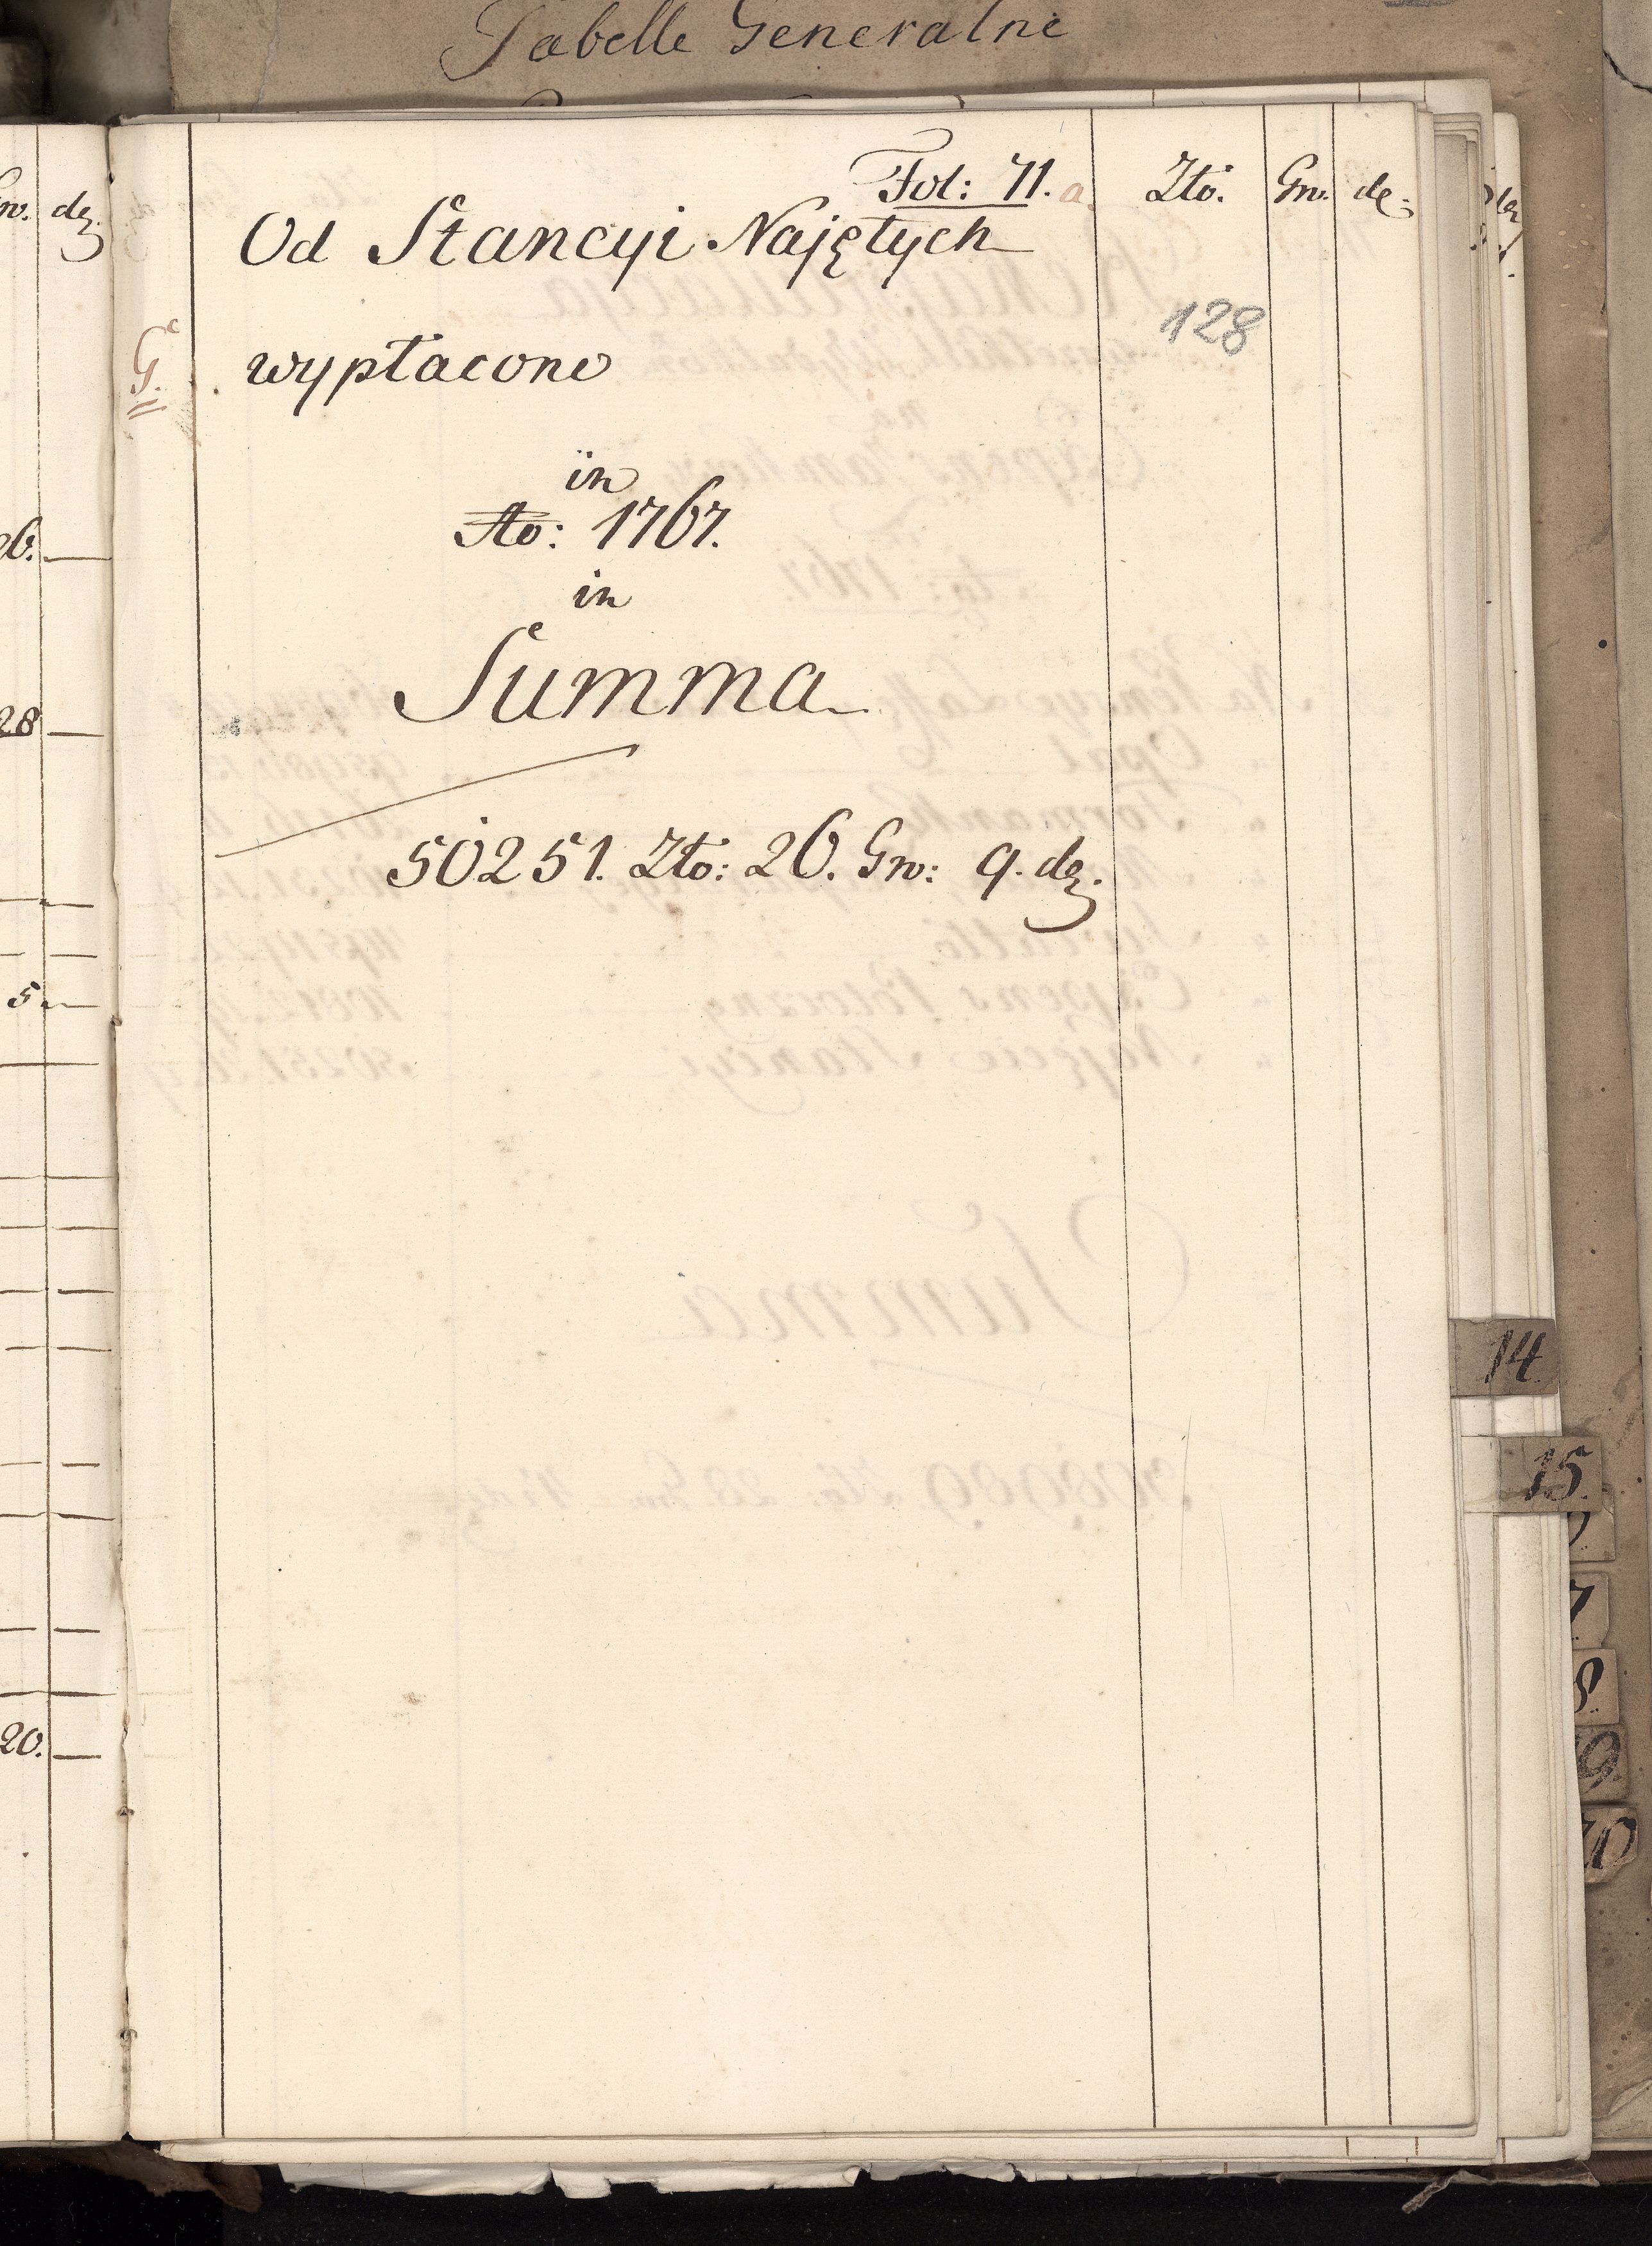 Tabelle Generalne
Fol: 71. a.
Złó. Gro. de:
Od Stancyi Najętych
128
G.
wypłacone
in
Ao: 1767.
in
Summa
50251. Złó: 26. Gro: 9. de:
14
15.
Gro. de:
26.
28
5
20.
7
8.
9.